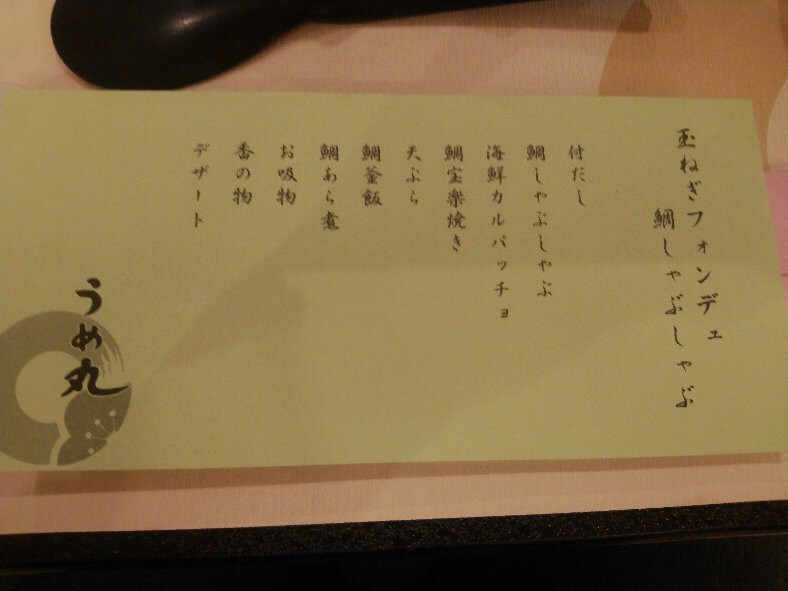 玉ねぎフォンデュ
鯛しゃぶしゃぶ
付だし
鯛しゃぶしゃぶ
海鮮カルパッチョ
鯛宝楽焼き
天ぷら
鯛釜飯
鯛あら煮
お吸物
香の物
デザート
うめ丸